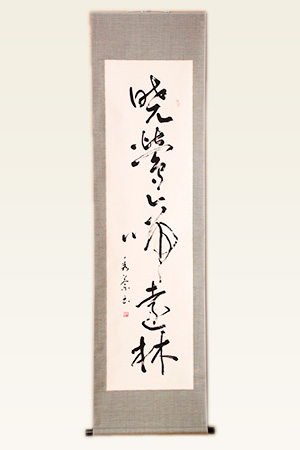 暁鶯啼遠林